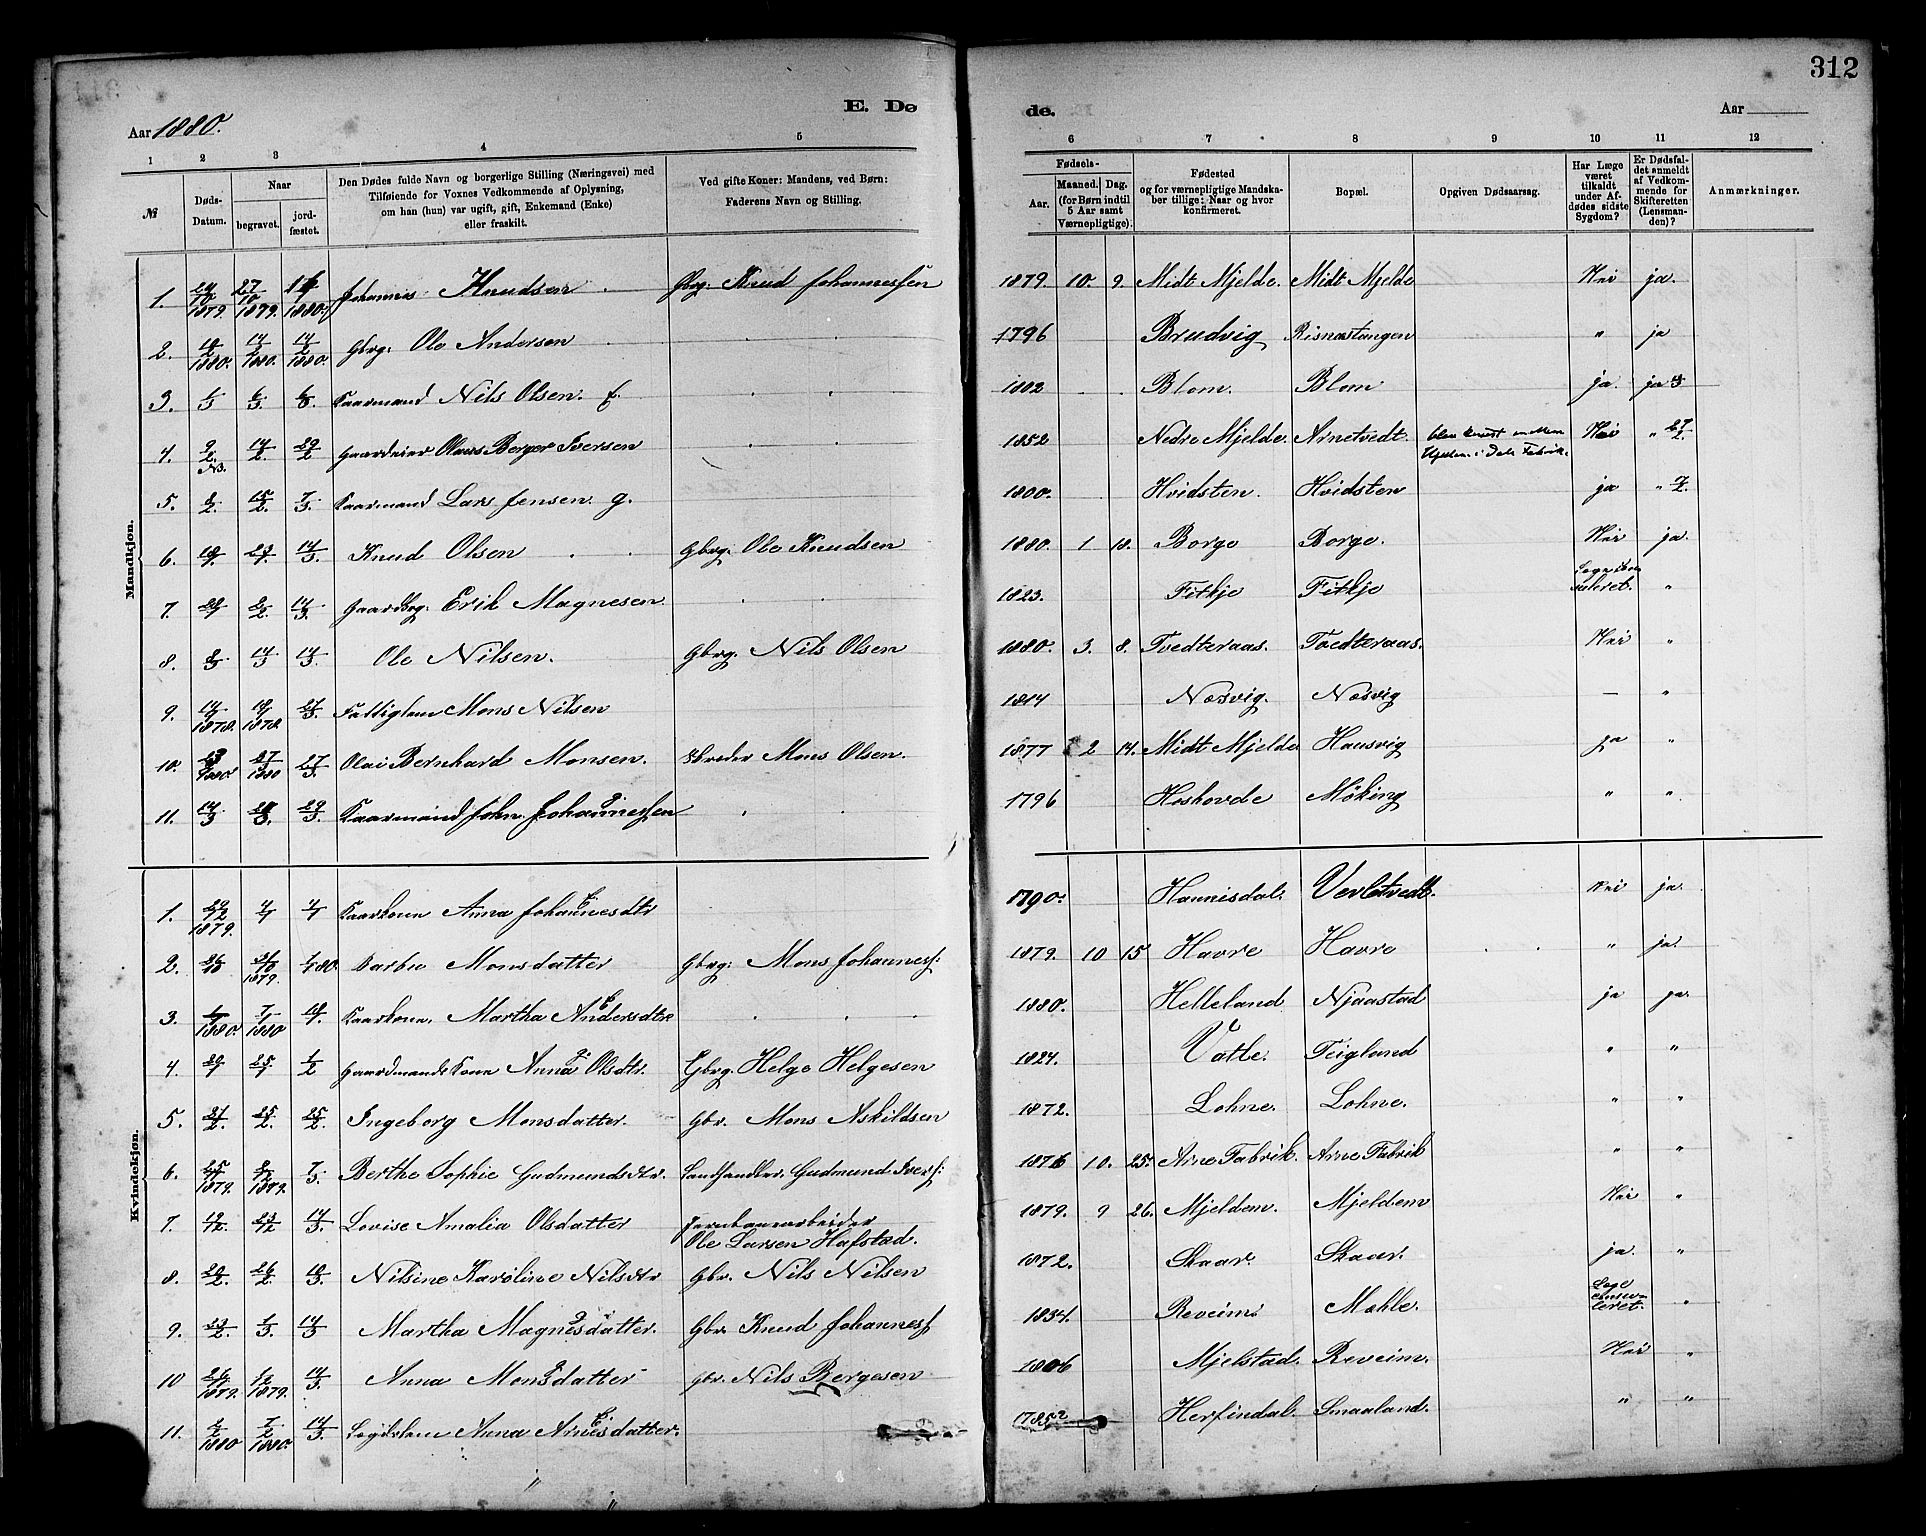 312
E. Dø de.
Aar 1880. Aar
1 2 3 4 5 6 7 8 9 10 11 12
№
Døds-Datum.
Naar
begravet.
jord-fæstet.
Den Dødes fulde Navn og borgerlige Stilling (Næringsvei) med
Tilføiende for Voxnes Vedkommende af Oplysning,
om han (hun) var ugift, gift, Enkemand (Enke)
eller fraskilt.
Ved gifte Koner: Mandens, ved Børn:
Faderens Navn og Stilling.
Fødsels-
Aar.
Maaned. Dag.
(for Børn indtil
5 Aar samt
Værnepligtige).
Fødested
og for værnepligtige Mandska-
ber tillige: Naar og hvor
konfirmeret.
Bopæl.
Opgiven Dødsaarsag.
Har Læge
været
tilkaldt
under Af-
dødes sidste
Sygdom?
Er Dødsfal-
det anmeldt
af Vedkom-
mende for
Skifteretten
(Lensman-
den)?
Anmærkninger.
Mandkjøn.
1. 24/10 1879. 27/10 1879. 1880. Johannes Knudsen Gbrg. Knud Johannessen 1879 10. 9. Midt Mjelde. Midt Mjelde Nei ja.
2. 1880. 14/2 1880. 14/2 1880. Gbrg. Ole Andersen 1796 Brudvig Risnæstangen " ja
3. Kaarmand Nils Olsen. E. 1802 Blom. Blom ja. ja
4. 9/2 14/2 29/2 Gaardeier Olaus Berger Iversen 1852 Nedre Mjelde. Arnetvedt. Nei " 27/2.
5. 8/2 15/2 7/3. Kaarmand Lars Jensen. g. 1800. Hvidsten. Hvidsten ja "
6. 14/3. Knud Olsen Gbrg. Ole Knudsen 1880. 1 18. Borge Borge. Nei ja.
7. 14/3. Gaardbrg. Erik Magnesen 1823. Fitkje Fitkje "
8. 8/3 14/3 14/3. Ole Nilsen. Gbrg. Nils Olsen 1880. 3. 8. Tvedteraas. Tvedteraas. Nei "
9. 1878. 1878. 21/3. Fattiglem Mons Nilsen 1814 Næsvig. Næsvig – "
10. 1880 27/3 1880 27/3. Olai Bernhard Monsen. Skreder Mons Olsen. 1877 2 14. Midt Mjelde Hausvig ja "
11. 14/3 29/3. Kaarmand John Johannessen 1796 Hoshovde Möking " "
Kvindekjøn.
1. 29/12 1879. 4/1 4/1 Kaarkone Anna Johannesdtr E. 1790. Hannisdal. Vevletvedt. Nei ja.
2. 26/10 1879. 80. Barbro Monsdatter Gbrg. Mons Johannesf: 1879. 10 15 Havre Havre " ja.
3. 1880. 1880 Kaarkone. Martha Andersdtr E. 1880. Helleland Njaastad ja ja.
4. 1/2 Gaardmands Kone Anna Olsdtr. Gbrg. Helge Helgesen 1824. Vatle. Teigland " "
5. 21/2. 25/2. 25/2 Ingeborg Monsdatter. Gbr. Mons Askildsen 1872. Lohne. Lohne. " "
6. 1879. 1879. 7/3. Berthe Sophie Gudmundsdtr. Landhandler. Gudmund Iversf: 1876 10. 25. Arne Fabrik. Arne Fabrik " "
7. 19/12. 23/12 14/3 Lovise Amalia Olsdatter Jernbanearbeider
Ole Larsen Hafstad. 1879. 9 26. Mjeldem. Mjeldem Nei "
8. 20/2. 26/2 Nilsine Karoline Nilsdtr Gbr. Nils Nilsen 1872. Skaar. Skaar. ja. "
9. 23/2. 14/3 Martha Magnesdatter. Gbr. Knud Johannesf 1834. Reveim. Mahle. "
10 1879. 1879. 14/3. Anna Monsdatter gbr. Nils Bergesen 1806 Mjelstad. Reveim. Nei "
11. 1880 7/2 1880. 14/3. Anna Arnesdatter. E. 1785? Herfindal. Smaaland. " "